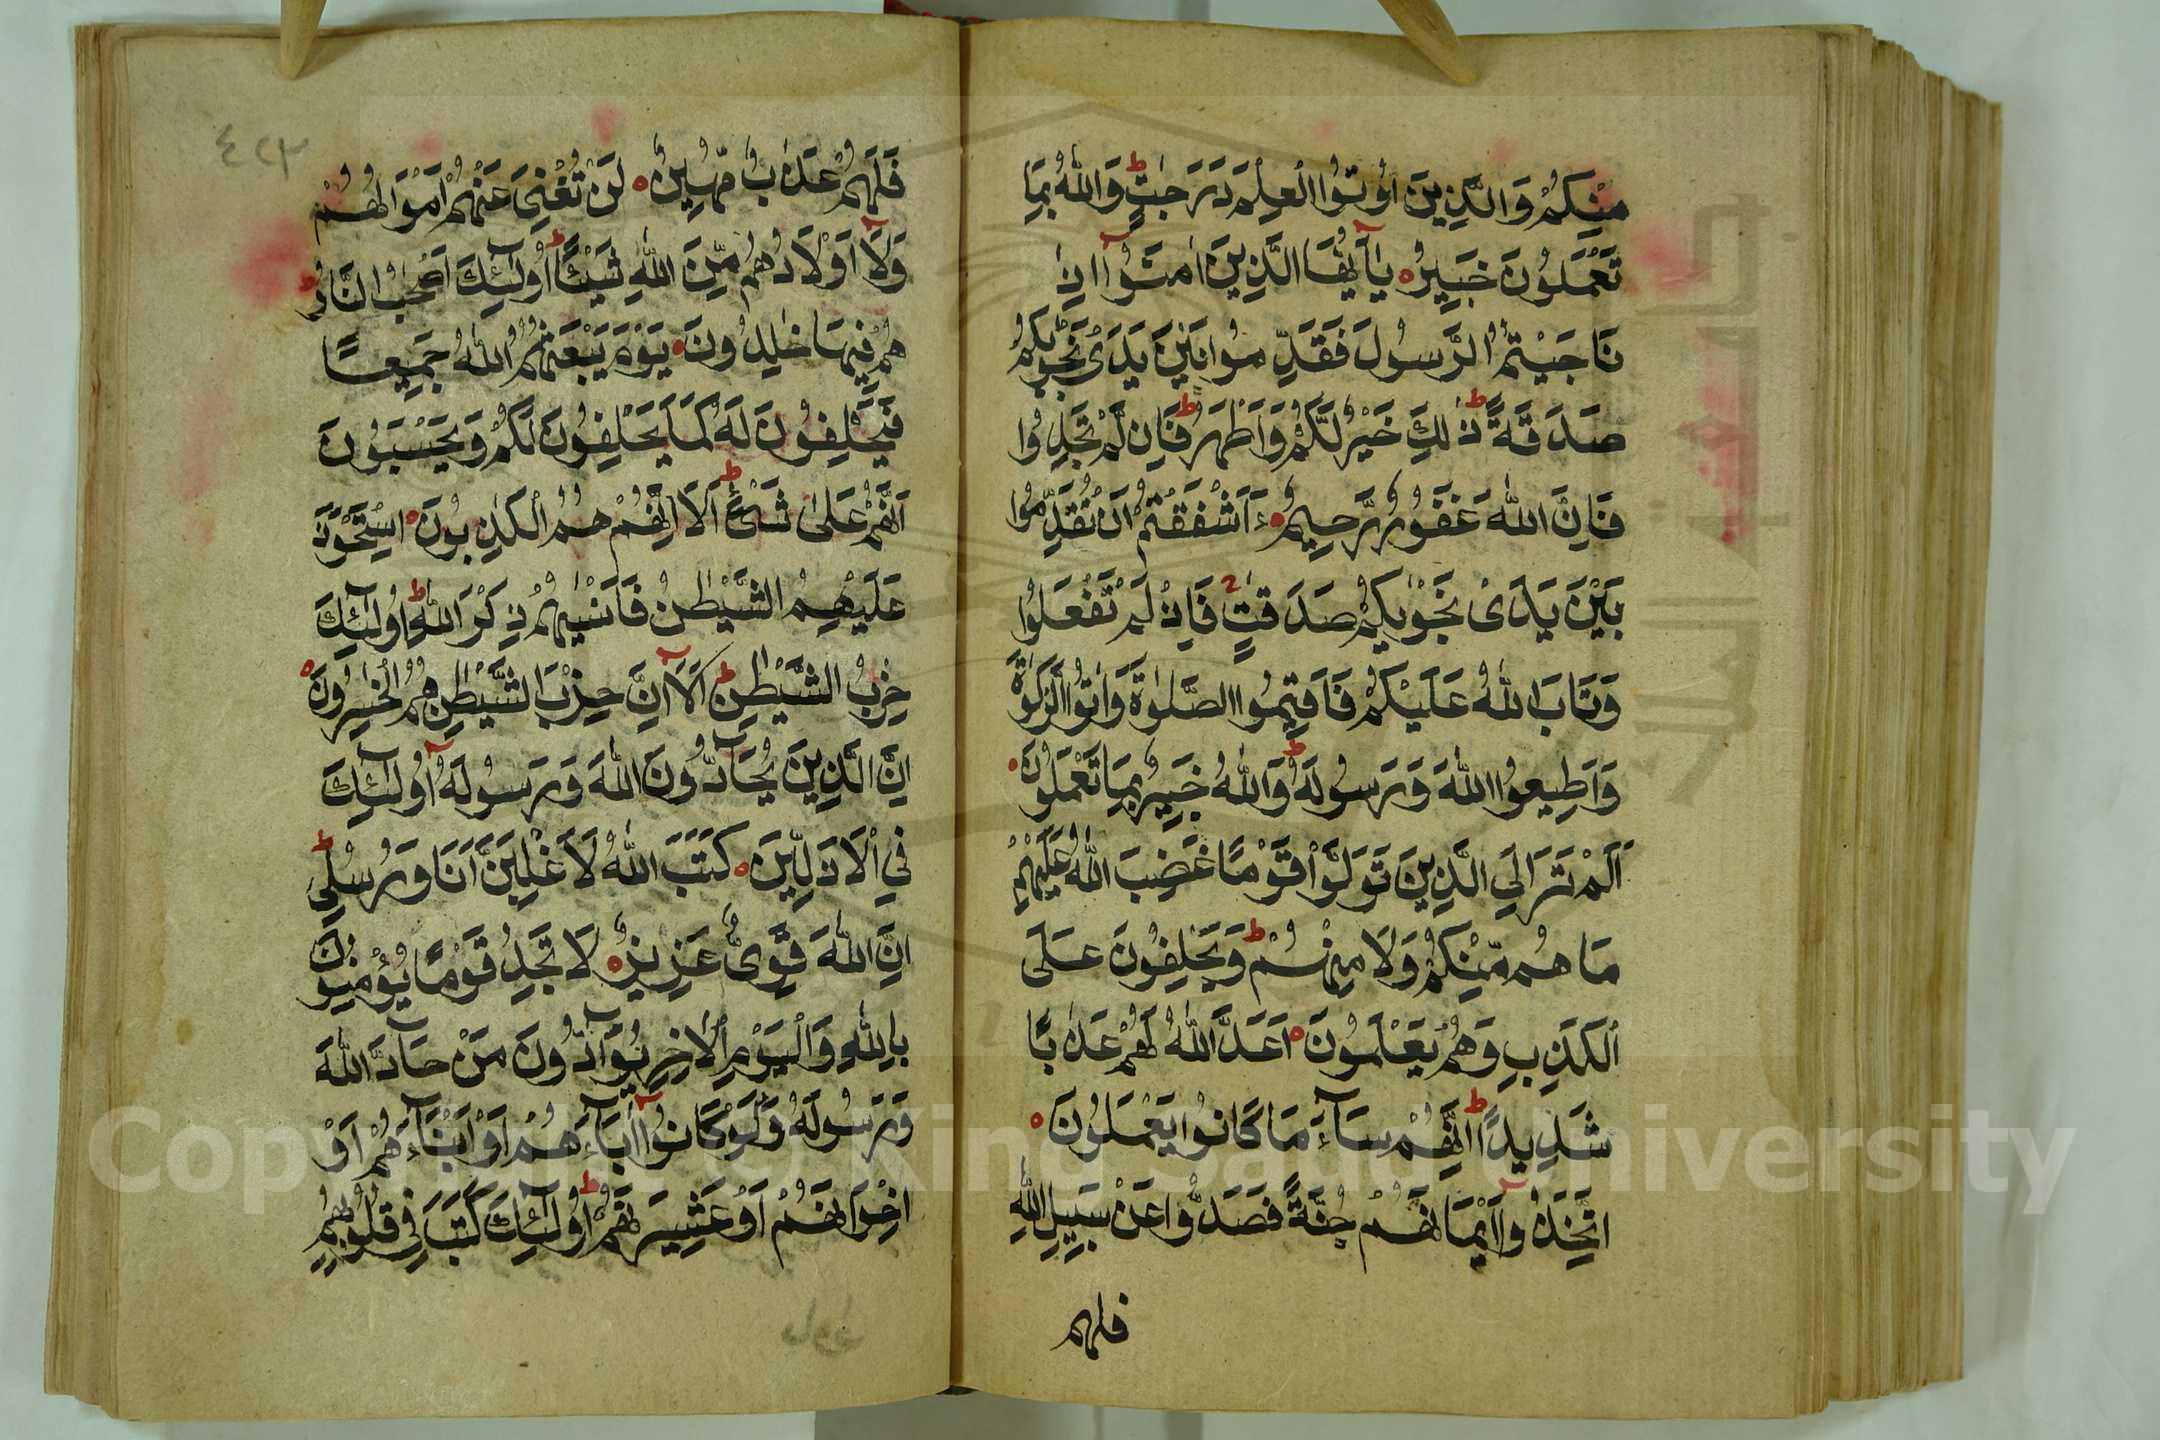 مِنْكُمْ وَالَّذِينَ أُوتُوا الْعِلْمَ دَرَجٰتٍ ط وَاللّٰهُ بِمَا
تَعْمَلُونَ خَبِيرٌ ه يٰٓاَيُّهَا الَّذِينَ اٰمَنُوٓا اِذَا
نَاجَيْتُمُ الرَّسُولَ فَقَدِّمُوا بَيْنَ يَدَىْ نَجْوٰىكُمْ
صَدَقَةً ط ذٰلِكَ خَيْرٌ لَّكُمْ وَاَطْهَرُ ط فَاِنْ لَّمْ تَجِدُوا
فَاِنَّ اللّٰهَ غَفُورٌ رَّحِيمٌ ه ءَاَشْفَقْتُمْ اَنْ تُقَدِّمُوا
بَيْنَ يَدَىْ نَجْوٰىكُمْ صَدَقٰتٍ فَاِذْ لَمْ تَفْعَلُوا
وَتَابَ اللّٰهُ عَلَيْكُمْ فَاَقِيمُوا الصَّلٰوةَ وَاٰتُوا الزَّكٰوةَ
وَاَطِيعُوا اللّٰهَ وَرَسُولَهُ ط وَاللّٰهُ خَبِيرٌ بِمَا تَعْمَلُونَ ه
اَلَمْ تَرَ اِلَى الَّذِينَ تَوَلَّوْا قَوْمًا غَضِبَ اللّٰهُ عَلَيْهِمْ
مَا هُمْ مِّنْكُمْ وَلَا مِنْهُمْ ط وَيَحْلِفُونَ عَلَى
الْكَذِبِ وَهُمْ يَعْلَمُونَ ه اَعَدَّ اللّٰهُ لَهُمْ عَذَابًا
شَدِيدًا ط اِنَّهُمْ سَآءَ مَا كَانُوا يَعْمَلُونَ ه
اتَّخَذُوٓا اَيْمَانَهُمْ جُنَّةً فَصَدُّوا عَنْ سَبِيلِ اللّٰهِ
فلهم
٤٢٣
فَلَهُمْ عَذَابٌ مُّهِينٌ ه لَنْ تُغْنِىَ عَنْهُمْ اَمْوَالُهُمْ
وَلَآ اَوْلَادُهُمْ مِّنَ اللّٰهِ شَيْئًا ط اُولٰٓئِكَ اَصْحٰبُ النَّارِ ط
هُمْ فِيهَا خٰلِدُونَ ه يَوْمَ يَبْعَثُهُمُ اللّٰهُ جَمِيعًا
فَيَحْلِفُونَ لَهُ كَمَا يَحْلِفُونَ لَكُمْ وَيَحْسَبُونَ
اَنَّهُمْ عَلٰى شَىْءٍ ط اَلَا اِنَّهُمْ هُمُ الْكٰذِبُونَ ه اِسْتَحْوَذَ
عَلَيْهِمُ الشَّيْطٰنُ فَاَنْسٰىهُمْ ذِكْرَ اللّٰهِ ط اُولٰٓئِكَ
حِزْبُ الشَّيْطٰنِ ط اَلَآ اِنَّ حِزْبَ الشَّيْطٰنِ هُمُ الْخٰسِرُونَ ه
اِنَّ الَّذِينَ يُحَآدُّونَ اللّٰهَ وَرَسُولَهُٓ اُولٰٓئِكَ
فِى الْاَذَلِّينَ ه كَتَبَ اللّٰهُ لَاَغْلِبَنَّ اَنَا وَرُسُلِى ط
اِنَّ اللّٰهَ قَوِىٌّ عَزِيزٌ ه لَا تَجِدُ قَوْمًا يُؤْمِنُونَ
بِاللّٰهِ وَالْيَوْمِ الْاٰخِرِ يُوَآدُّونَ مَنْ حَآدَّ اللّٰهَ
وَرَسُولَهُ وَلَوْ كَانُوٓا اٰبَآءَهُمْ اَوْ اَبْنَآءَهُمْ اَوْ
اِخْوَانَهُمْ اَوْ عَشِيرَتَهُمْ ط اُولٰٓئِكَ كَتَبَ فِى قُلُوبِهِمُ
Copyright © King Saud University